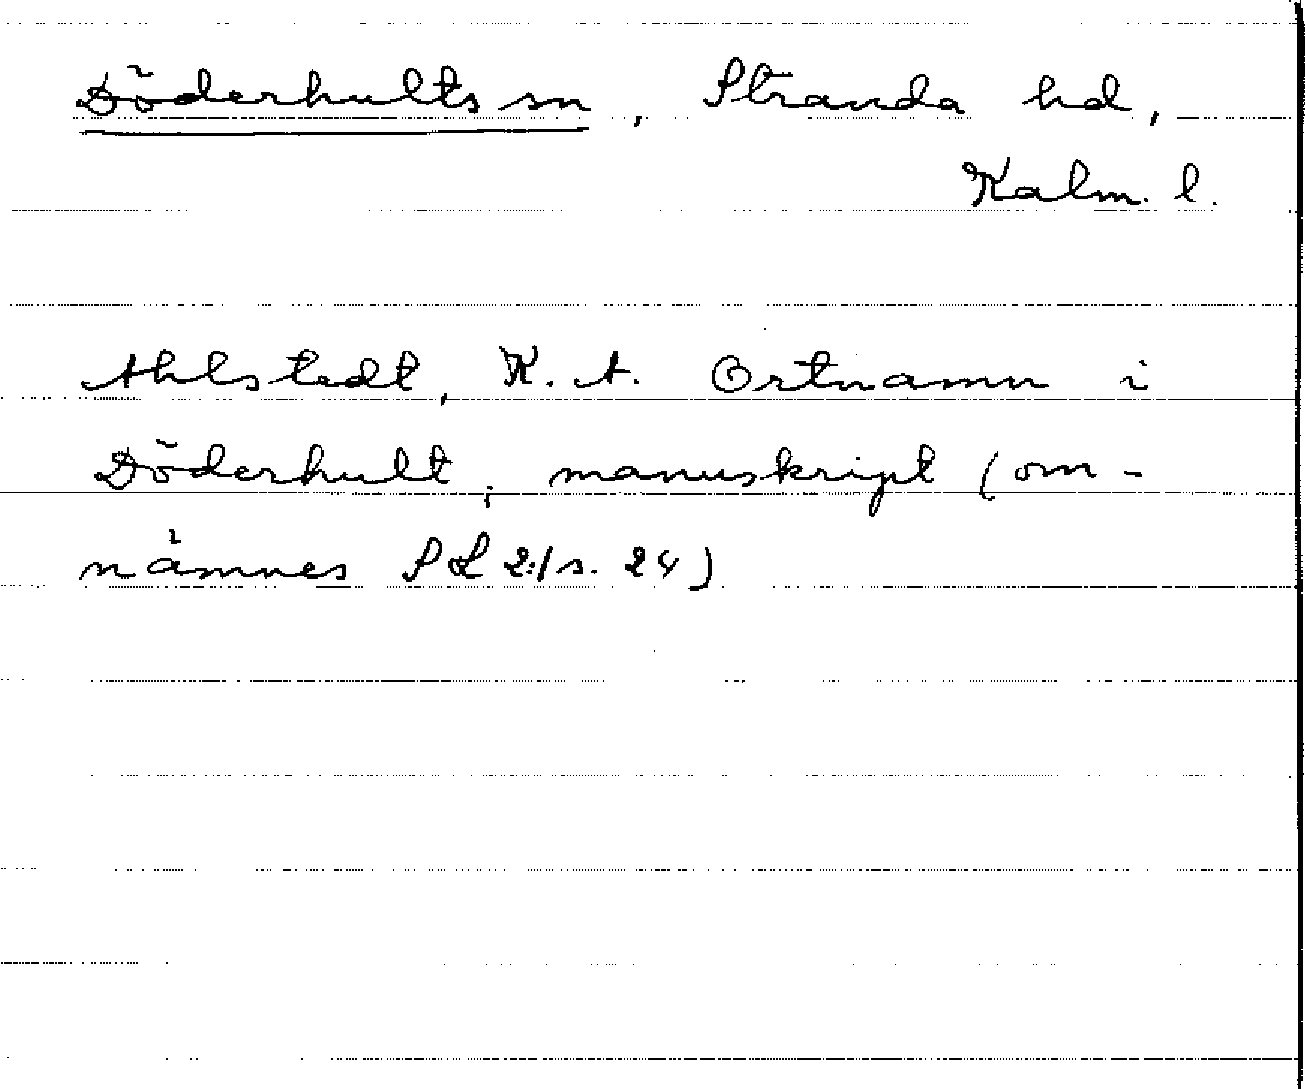 Döderhults sn, Stranda hd,
Kalm. l.
Ahlstedt, K. A. Ortnamn i
Döderhult, manuskript (om-
nämnes SL 2:1 s. 24)